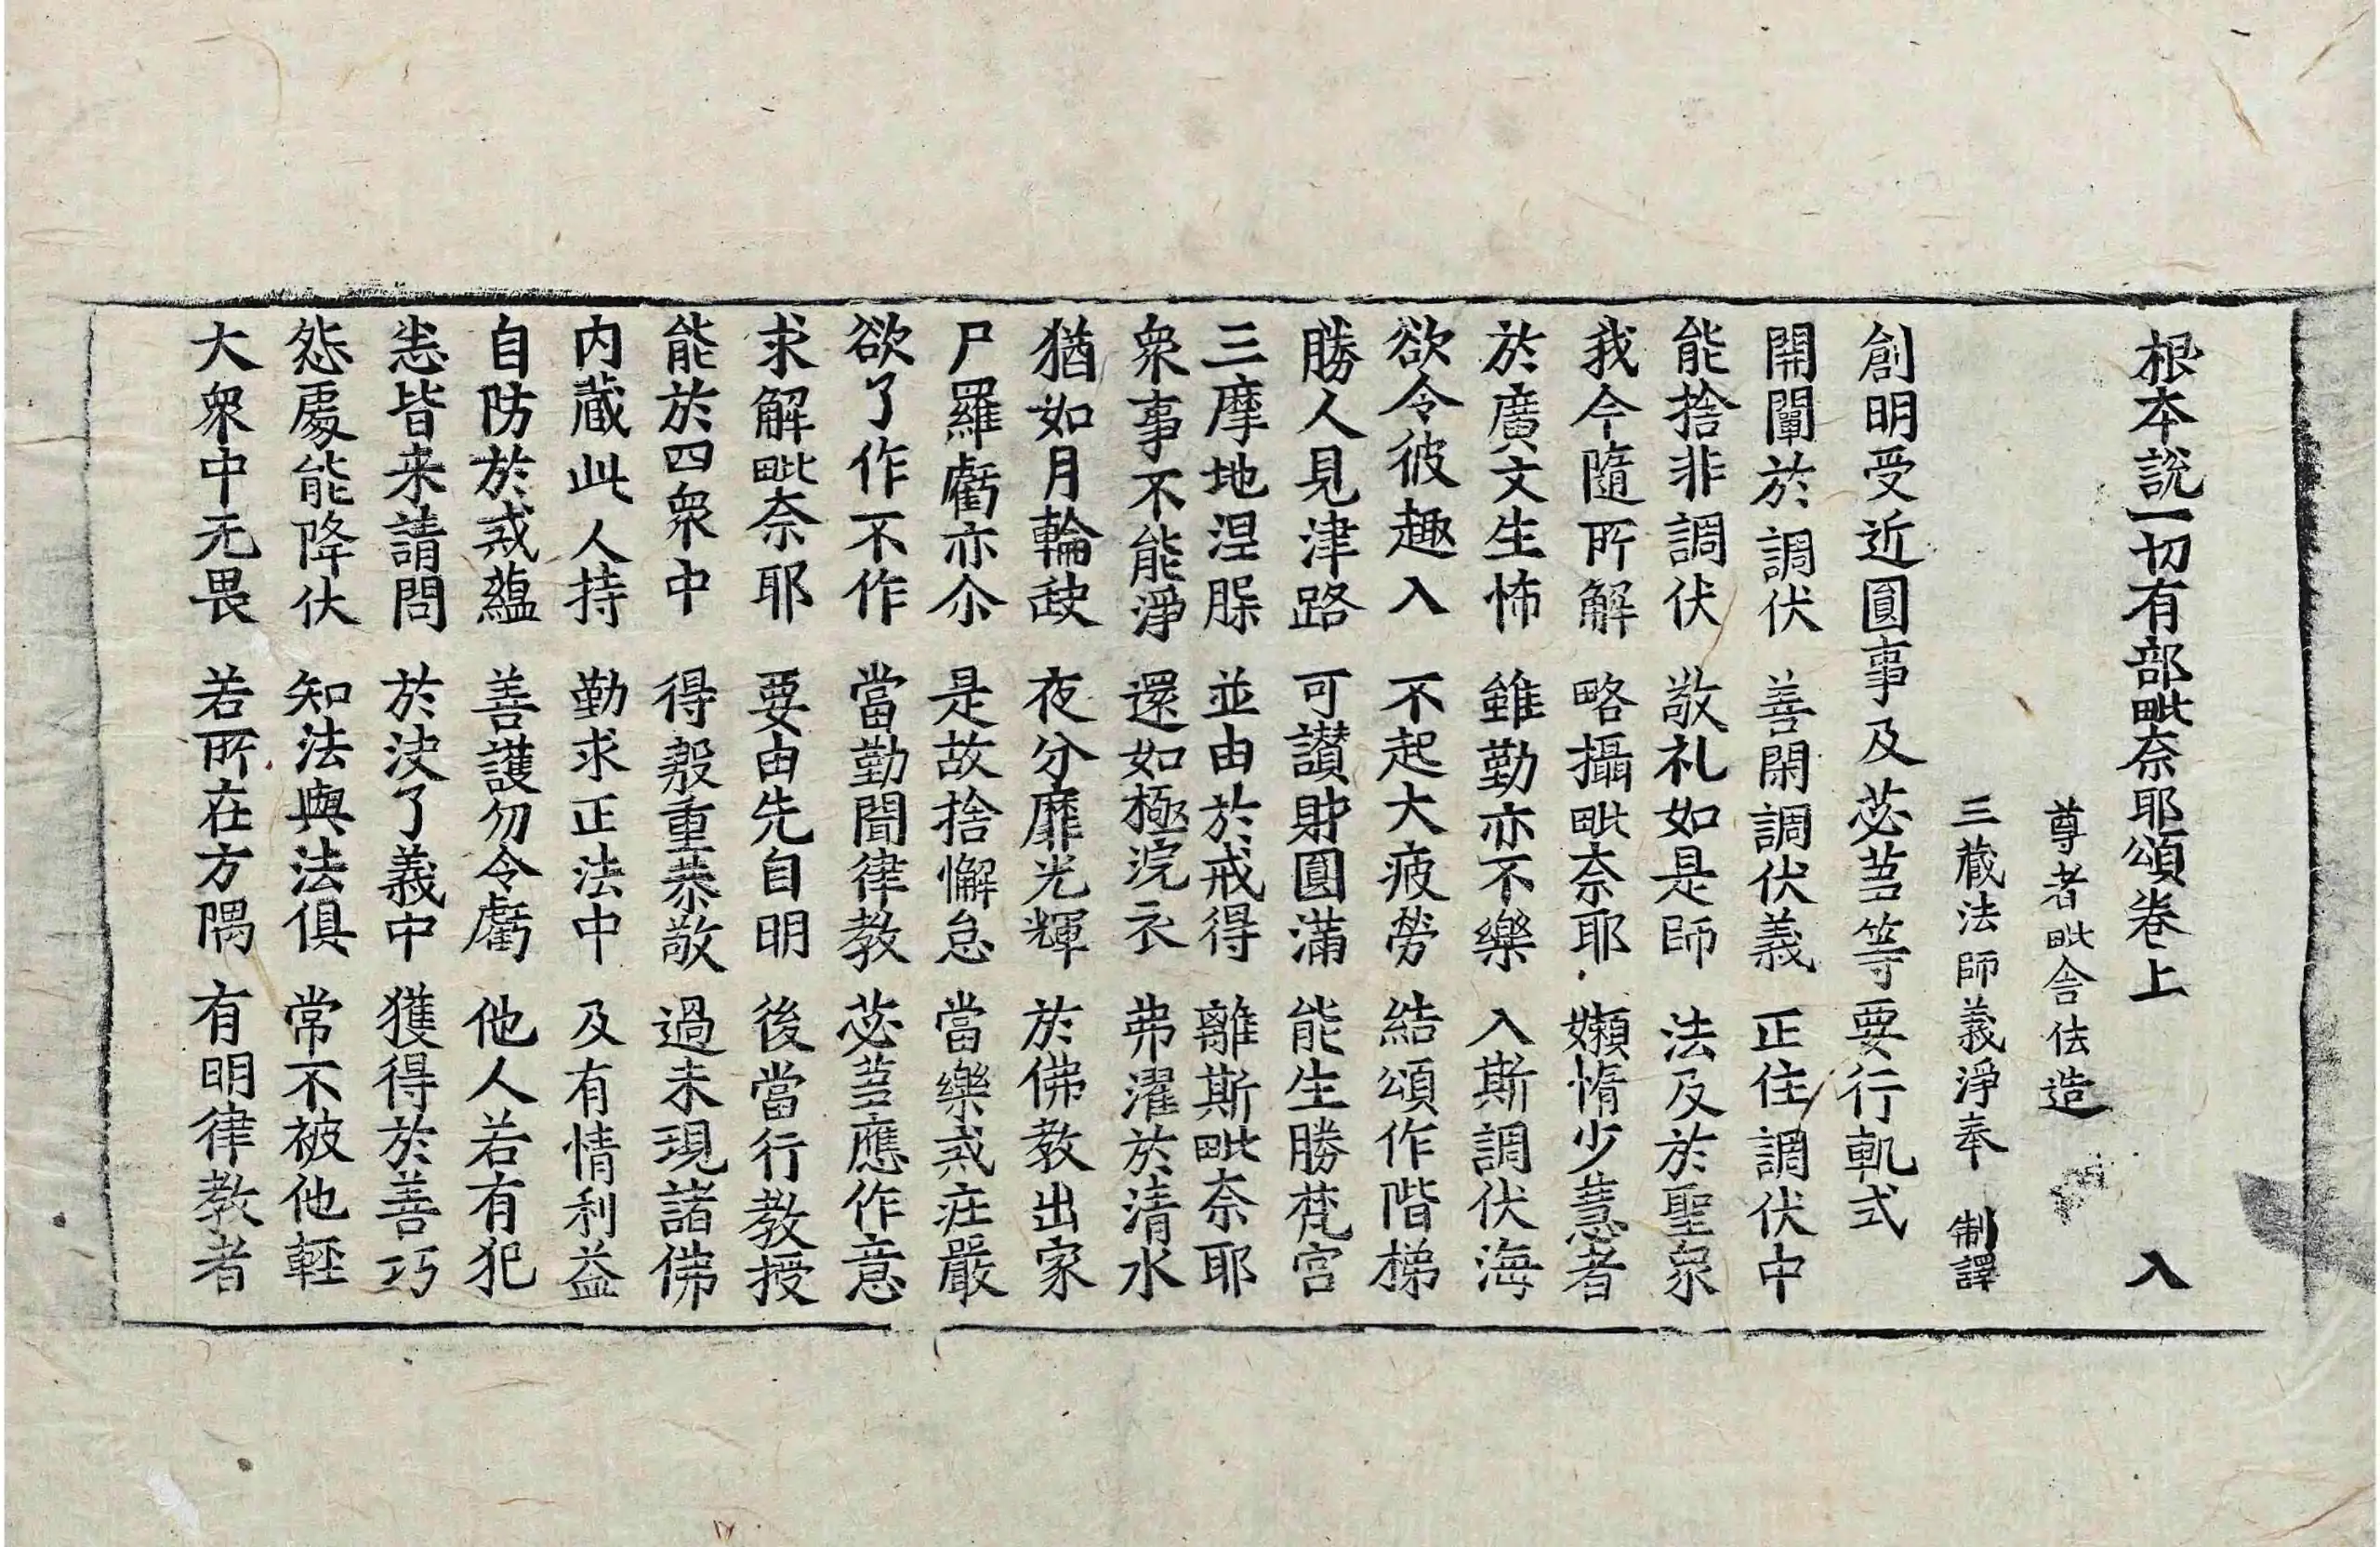 根本說一切有部毗奈耶頌卷上 入
尊者毗舍佉造
三藏法師義淨奉 制譯
創明受近圓事及苾芻等要行軌式
開闡於調伏 善閑調伏義 正住調伏中
能捨非調伏 敬礼如是師 法及於聖衆
我今隨所解 略攝毗奈耶 嬾惰少慧者
於廣文生怖 雖勤亦不樂 入斯調伏海
欲令彼趣入 不起大疲勞 結頌作階梯
勝人見津路 可讃財圓滿 能生勝梵宮
三摩地涅槃 並由於戒得 離斯毗奈耶
衆事不能淨 還如極浣衣 弗濯於清水
猶如月輪缺 夜分靡光輝 於佛教出家
尸羅虧亦尒 是故捨懈怠 當樂戒莊嚴
欲了作不作 當勤聞律教 苾芻應作意
求解毗奈耶 要由先自明 後當行教授
能於四衆中 得殷重恭敬 過未現諸佛
内藏此人持 勤求正法中 及有情利益
自防於戒蘊 善護勿令虧 他人若有犯
恙皆来請問 於决了義中 獲得於善巧
怨處能降伏 知法與法俱 常不被他輕
大衆中无畏 若所在方隅 有明律教者